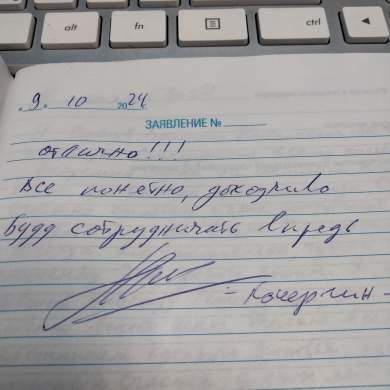 alt
fn
ctrl
9. 10 2024
ЗАЯВЛЕНИЕ №
отлично!!!
Все понетно, доходчиво
Буду сотрудничать впредь
- Кочергин -